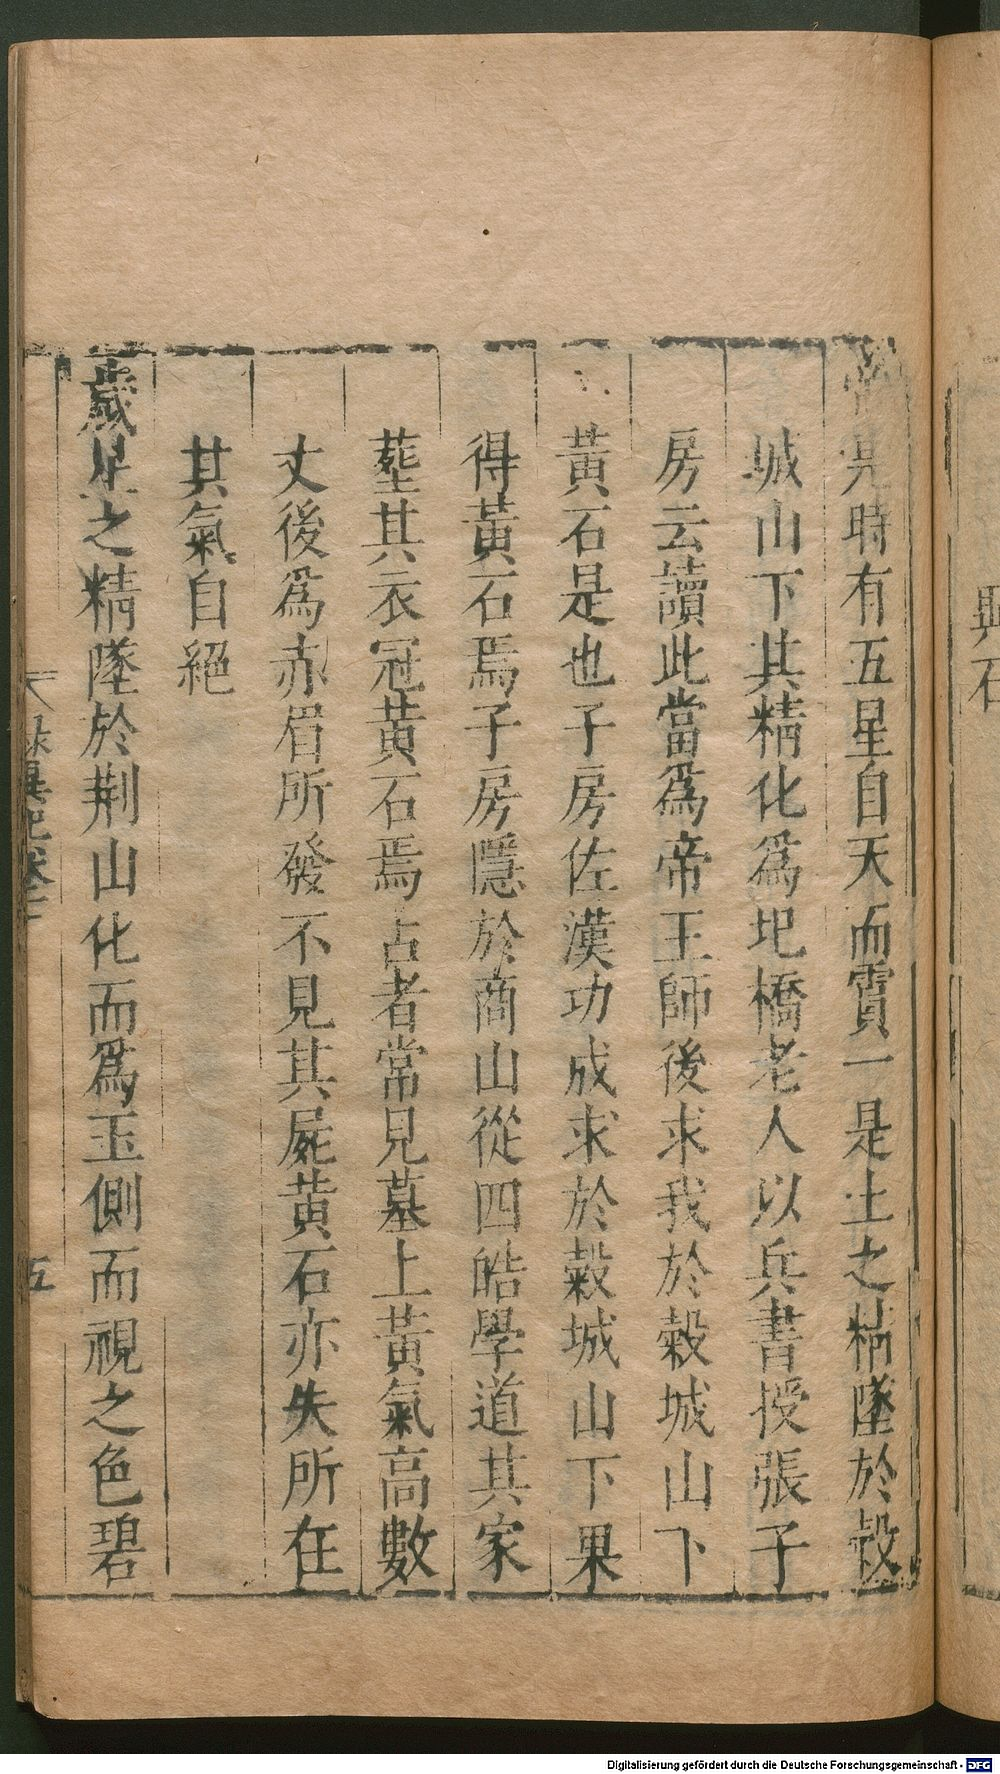 時有五星自天而霣一是土之精墜於穀
城山下其精化爲圯橋老人以兵書授張子
房云讀此當爲帝王師後求我於穀城山下
黃石是也子房佐漢功成求於穀城山下果
得黃石焉子房隱於商山從四皓學道其家
塟其衣冠黃石焉占者常見墓上黃氣高數
丈後爲赤眉所發不見其屍黃石亦失所在
其氣自絕
歲星之精墜於荆山化而爲玉側而視之色碧
五
異石
Digitalisierung gefördert durch die Deutsche Forschungsgemeinschaft - DFG